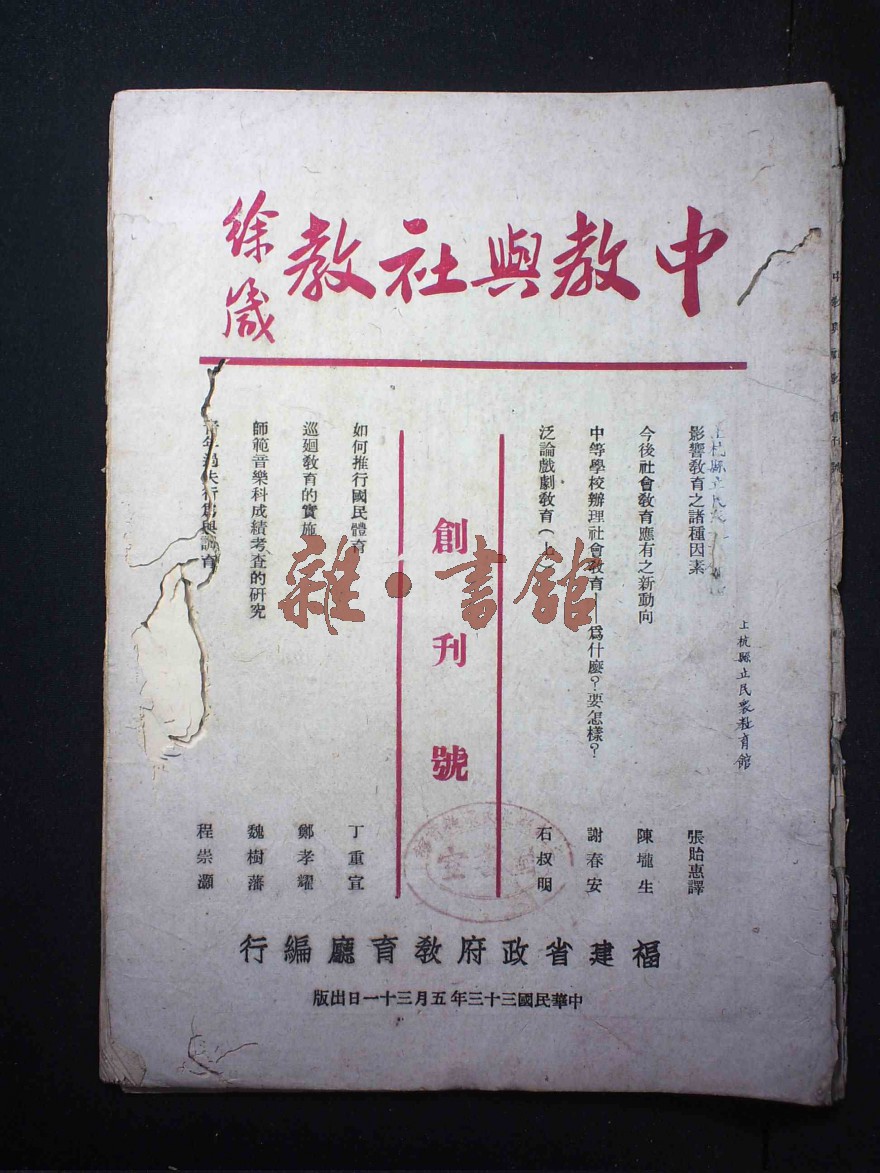 中教與社教
徐箴
影響教育之諸種因素 張貽惠譯
今後社會教育應有之新動向 陳壠生
中等學校辦理社會教育——爲什麼?要怎樣? 謝春安
泛論戲劇教育(上) 石叔明
創刊號
如何推行國民體育 丁重宣
巡廻教育的實施 鄭孝耀
師範音樂科成績考查的研究 魏樹藩
青年過失行為與訓育 程崇灝
上杭縣立民衆教育館
上杭縣立民
福建省政府教育廳編行
中華民國三十三年五月三十一日出版
雜·書館